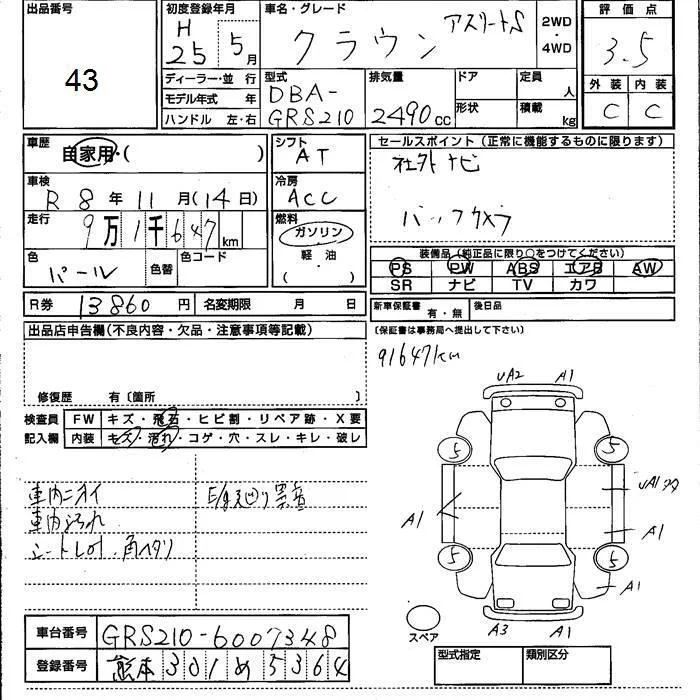 出品番号 初度登録年月 車名・グレード 2WD ・ 4WD 評価点
43 H 25年 5月 クラウン アスリートS 3.5
ディーラー・並行 型式 排気量 ドア 定員 人 外装 内装
モデル年式 年 DBA- 形状 積載 kg C C
ハンドル 左・右 GRS210 2490cc
車歴 自家用・( ) シフト AT セールスポイント(正常に機能するものに限ります)
車検 R8年11月(14日) 冷房 ACC 社外ナビ
走行 9万1千647km 燃料 ガソリン バックカメラ
色 パール 色替 色コード 軽油 ( )
装備品(純正品に限り○をつけてください)
PS PW ABS エアB AW
SR ナビ TV カワ
R券 13860円 名変期限 月 日 新車保証書 有・無 後日品
出品店申告欄(不良内容・欠品・注意事項等記載) (保証書は事務局へ提出して下さい)
91647km
修復歴 有〔箇所 〕
検査員 FW キズ・飛石・ヒビ割・リペア跡・X要
記入欄 内装 キズ・汚れ・コゲ・穴・スレ・キレ・破レ
車内ニオイ
車内汚れ
シートしわ・角ヘタリ
A1 A1 A1 A1 A3 A1
5 5 5 5
スペア
車台番号 GRS210-6007348
登録番号 熊本 301 め 5364
型式指定 類別区分